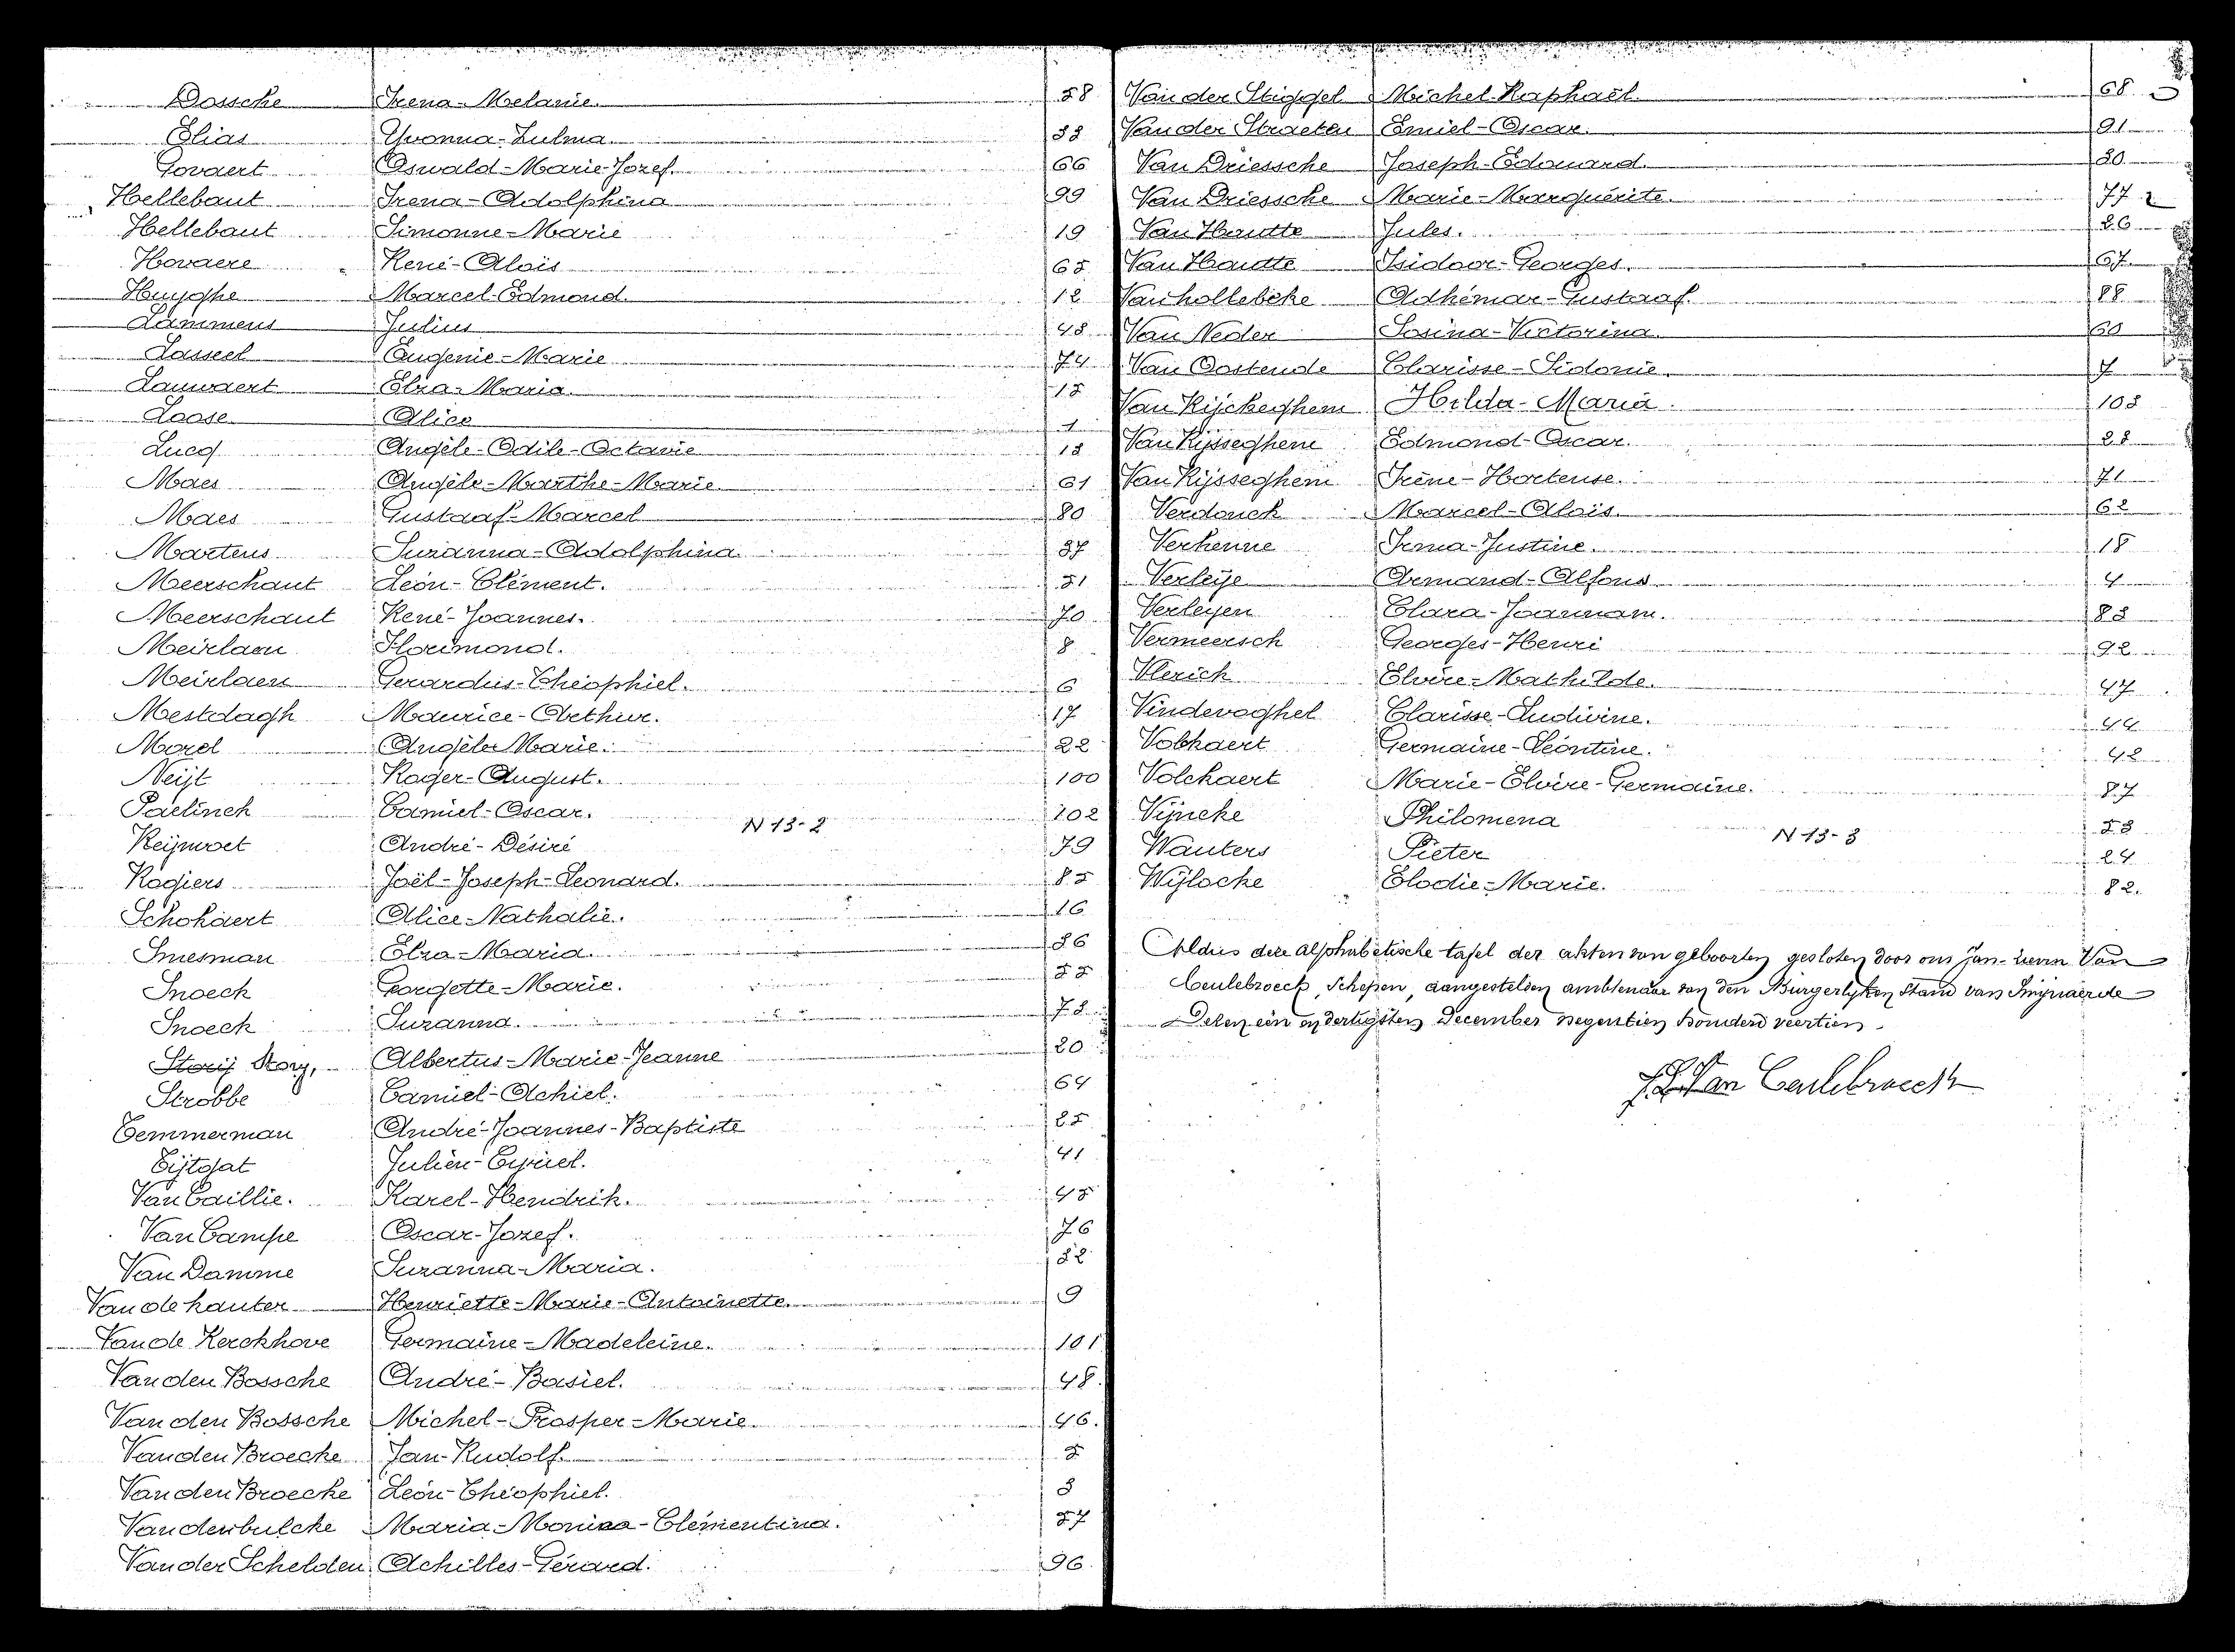 Dossche Irena-Melanie. 58
Elias Yvonna-Zulma. 33
Govaert Oswald-Marie-Jozef. 66
Hellebaut Irena-Adolphina 99
Hellebaut Simonne-Marie 19
Hovaere René-Aloïs 65
Huyghe Marcel-Edmond. 12
Lammens Julius 43
Lasseel Eugenie-Marie 74
Lauwaert Elza-Maria. 15
Loose Alice 1
Lucq Angèle-Odile-Octavie 13
Maes Angèle-Marthe-Marie 61
Maes Gustaaf-Marcel 80
Martens Suzanna-Adolphina. 37
Meerschaut Léon-Clément. 51
Meerschaut René-Joannes. 70
Meirlaen Florimond. 8
Meirlaen Gerardus-Théophiel. 6
Mestdagh Maurice-Arthur. 17
Morel Angèle Marie. 22
Neijt Roger-August. 100
Paelinck Camiel-Oscar. 102
N 13-2
Reijnvoet André-Désiré 79
Rogiers Joël-Joseph-Leonard. 85
Schokaert Alice-Nathalie. 16
Smesman Elza-Maria. 36
Snoeck Georgette-Marie. 55
Snoeck Suzanna. 73
Storij Story, Albertus-Marie-Jeanne 20
Strobbe Camiel-Achiel. 64
Temmerman André-Joannes-Baptiste 25
Tijtgat Julien-Cyriel. 41
Van Caillie. Karel-Hendrik. 45
Van Campe Oscar-Jozef. 76
Van Damme Suzanna-Maria. 52
Van de kauter Henriette-Marie-Antoinette. 9
Van de Kerckhove Germaine-Madeleine. 101
Van den Bossche André-Basiel. 48.
Van den Bossche Michel-Prosper-Marie 46.
Van den Broecke Jan-Rudolf. 5
Van den Broecke Léon-Théophiel. 3
Vandenbulcke Maria-Monica-Clémentina. 57
Van der Schelden Achilles-Gérard. 96
Van der Stiggel Michel-Raphaël. 68
Van der Straeten Emiel-Oscar. 91
Van Driessche Joseph-Edouard. 30
Van Driessche Marie-Marguérite. 77
Van Houtte Jules. 26
Van Houtte Isidoor-Georges. 67
Vanhollebeke Adhémar-Gustaaf. 88
Van Neder Sosina-Victorina. 60
Van Oostende Clarisse-Sidonie. 7
Van Rijckeghem Hilda-Maria. 103
Van Rijsseghem Edmond-Oscar. 28
Van Rijsseghem Irène-Hortense. 71
Verdonck Marcel-Aloïs. 62
Verhenne Irma-Justine. 18
Verleije Armand-Alfons 4
Verleyen Clara-Joannam. 83
Vermeersch Georges-Henri 92
Vlerick Elvire-Mathilde. 47
Vindevoghel Clarisse-Ludivine. 44
Volkaert Germaine-Léontine. 42
Volckaert Marie-Elvire-Germaine. 87
Vijncke Philomena 53
N 13-3
Wauters Pieter 24
Wijlocke Elodie-Marie. 82.
Aldus deze alphabetische tafel der akten van geboorten gesloten door ons Jan-Livin Van
Ceulebroeck, Schepen, aangestelden ambtenaar van den Burgerlyken Stand van Swijnaerde
Dezen een en dertigsten December negentien honderd veertien.
J. L. Van Ceulebroeck